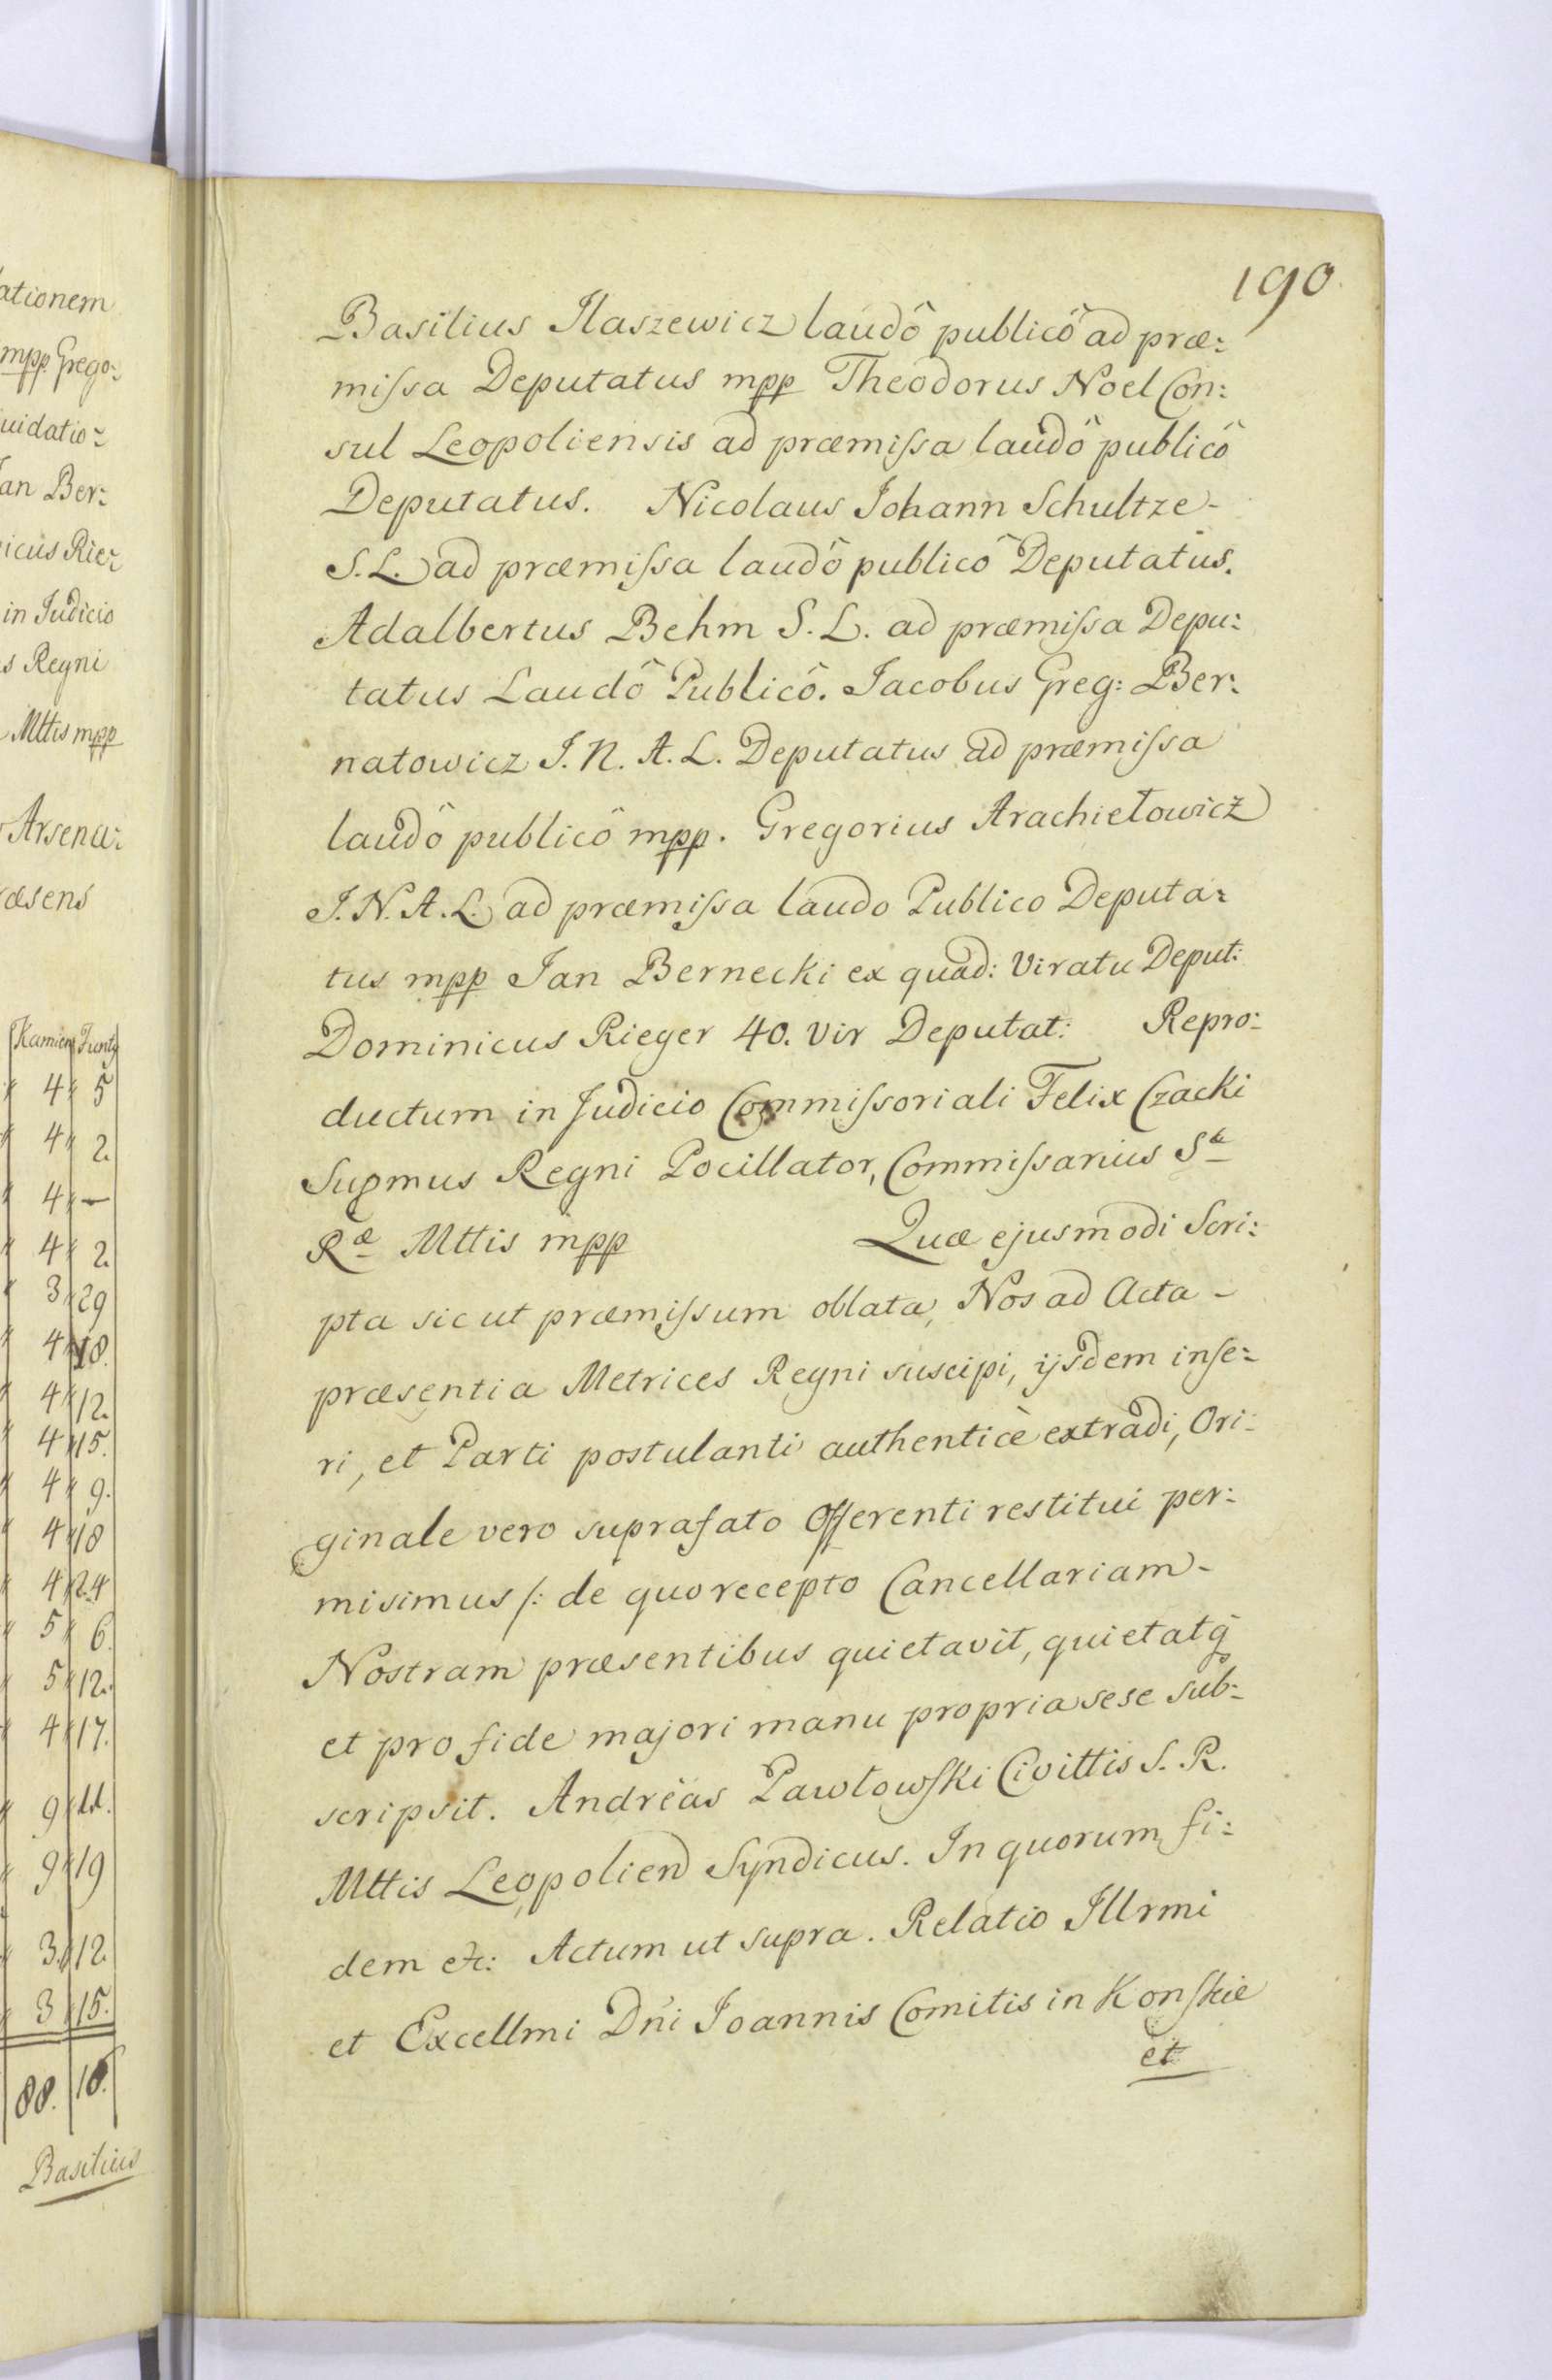 190.
Basilius Ilaszewicz laudô publicô ad præ:
missa Deputatus mpp Theodorus Noel Con:
sul Leopoliensis ad præmissa laudô publicô
Deputatus. Nicolaus Johann Schultze -
S. L. ad præmissa laudô publicô Deputatus.
Adalbertus Behm S. L. ad præmissa Depu:
tatus Laudô Publicô. Jacobus Greg: Ber:
natowicz J. N. A. L. Deputatus ad præmissa
laudô publicô mpp. Gregorius Arachiełowicz
J. N. A. L. ad præmissa laudo Publico Deputa:
tus mpp Jan Bernecki ex quad: Viratu Deput:
Dominicus Rieger 40. Vir Deputat: Repro:
ductum in Judicio Commissoriali Felix Czacki
Supmus Regni Pocillator, Commissarius Sæ
Ræ Mttis mpp Quæ ejusmodi Scri:
pta sicut præmissum oblata, Nos ad Acta -
præsentia Metrices Regni suscipi, ijsdem inse:
ri, et Parti postulanti authenticè extradi, Ori:
ginale vero suprafato Offerenti restitui per:
misimus /: de quo recepto Cancellariam -
Nostram præsentibus quietavit, quietatq
et pro fide majori manu propria sese sub:
scripsit. Andreas Pawłowski Civittis S. R.
Mttis Leopolien Syndicus. In quorum fi:
dem etc: Actum ut supra. Relatio Illrmi
et Excellmi Dni Joannis Comitis in Konskie
et
ationem
mpp Grego:
uidatio:
an Ber:
icus Rie:
in Judicio
s Regni
Mttis mpp
Arsena:
æsens
Kamien Funty
4 5
4 2.
4 -
4 2.
3 29
4 18.
4 12.
4 15.
4 9.
4 18
4 24
5 6.
5 12.
4 17.
9 11.
9 19
3. 12.
3 15.
88. 18.
Basilius